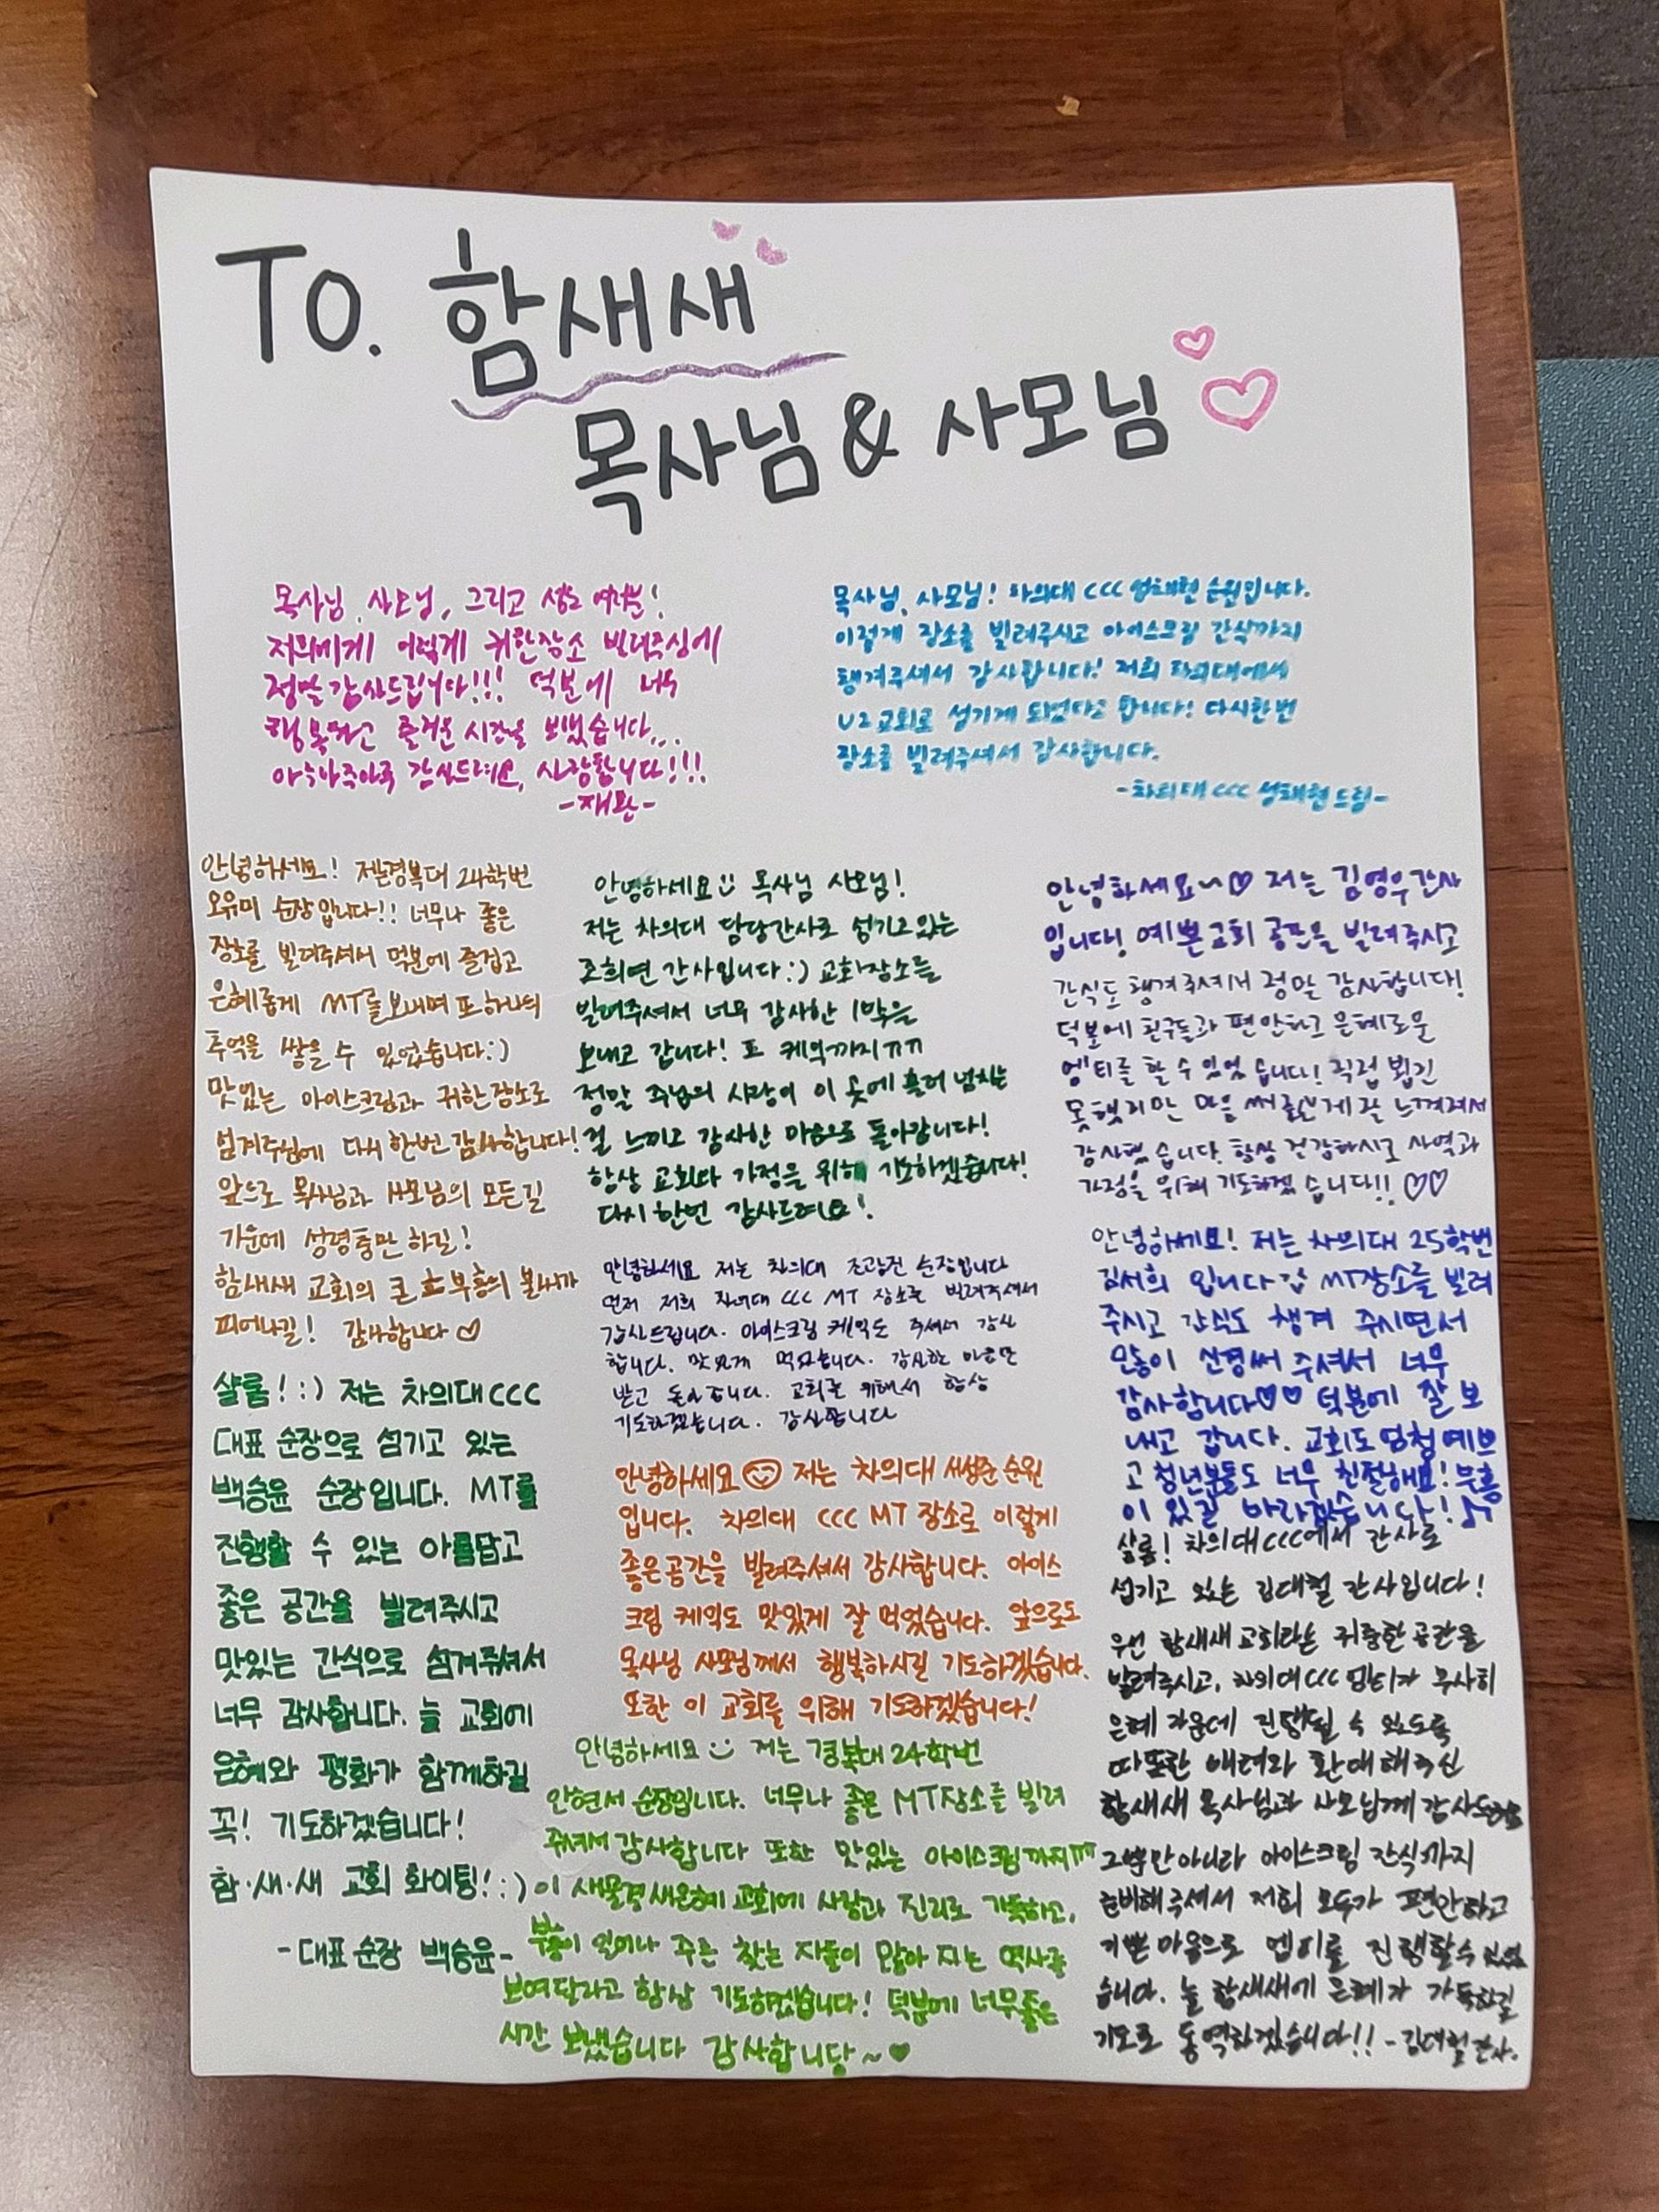 To. 함새새
목사님 & 사모님
목사님, 사모님, 그리고 성도 여러분!
저희에게 이렇게 귀한장소 빌려주심에
정말 감사드립니다!!! 덕분에 너무
행복하고 즐거운 시간을 보냈습니다...
감사드려요, 사랑합니다!!!
-재환-
목사님, 사모님! 차의대 CCC 순원입니다.
이렇게 장소를 빌려주시고 아이스크림 간식까지
챙겨주셔서 감사합니다! 저희 차의대에서
교회로 섬기게 되었다고 합니다! 다시한번
장소를 빌려주셔서 감사합니다.
-차의대 CCC 드림-
안녕하세요! 경복대 24학번
오유미 순장입니다!! 너무나 좋은
장소를 빌려주셔서 덕분에 즐겁고
은혜롭게 MT를 보내며 또 하나의
추억을 쌓을 수 있었습니다:)
맛있는 아이스크림과 귀한장소로
섬겨주심에 다시 한번 감사합니다!
앞으로 목사님과 사모님의 모든길
가운데 성령충만 하길!
함새새 교회의 큰 부흥의 불씨가
피어나길! 감사합니다♡
샬롬! :) 저는 차의대 CCC
대표 순장으로 섬기고 있는
백승윤 순장입니다. MT를
진행할 수 있는 아름답고
좋은 공간을 빌려주시고
맛있는 간식으로 섬겨주셔서
너무 감사합니다. 늘 교회에
은혜와 평화가 함께하길
꼭! 기도하겠습니다!
함·새·새 교회 화이팅! :)
-대표 순장 백승윤-
안녕하세요 :) 목사님 사모님!
저는 차의대 담당간사로 섬기고있는
조희연 간사입니다:) 교회장소를
빌려주셔서 너무 감사한 1박을
보내고 갑니다! 또 케익까지ㅠㅠ
정말 주님의 사랑이 이 곳에 흘러 넘치는
걸 느끼고 감사한 마음으로 돌아갑니다!
항상 교회와 가정을 위해 기도하겠습니다!
다시 한번 감사드려요!
안녕하세요 저는 차의대 순장입니다
먼저 저희 차의대 CCC MT 장소를 빌려주셔서
감사드립니다. 아이스크림 케익도 주셔서 감사
합니다. 맛있게 먹었습니다. 감사한 마음만
받고 돌아갑니다. 교회를 위해서 항상
기도하겠습니다. 감사합니다
안녕하세요 저는 차의대 순원
입니다. 차의대 CCC MT 장소로 이렇게
좋은공간을 빌려주셔서 감사합니다. 아이스
크림 케익도 맛있게 잘 먹었습니다. 앞으로도
목사님 사모님께서 행복하시길 기도하겠습니다.
또한 이 교회를 위해 기도하겠습니다!
안녕하세요 :) 저는 경복대 24학번
안현서 순장입니다. 너무나 좋은 MT장소를 빌려
주셔서 감사합니다 또한 맛있는 아이스크림까지ㅠㅠ
이 새물결새은혜 교회에 사랑과 진리로 가득하고,
부흥이 일어나 주를 찾는 자들이 많아 지는 역사를
보여달라고 항상 기도하겠습니다! 덕분에 너무좋은
시간 보냈습니다 감사합니당~♥
안녕하세요~♡ 저는 김영우간사
입니다! 예쁜교회 공간을 빌려주시고
간식도 챙겨주셔서 정말 감사합니다!
덕분에 친구들과 편안하고 은혜로운
엠티를 할 수 있었습니다! 직접 뵙진
못했지만 마음 써주신게 잘 느껴져서
감사했습니다. 항상 건강하시고 사역과
가정을 위해 기도하겠습니다!! ♡♡
안녕하세요! 저는 차의대 25학번
김서희 입니다 MT장소를 빌려
주시고 간식도 챙겨 주시면서
많이 신경써 주셔서 너무
감사합니다♡♡ 덕분에 잘 보
내고 갑니다. 교회도 엄청 예쁘
고 청년분들도 너무 친절해요! 부흥
이 있길 바라겠습니다! ♪
샬롬! 차의대CCC에서 간사로
섬기고 있는 김대철 간사입니다!
우선 함새새교회라는 귀중한 공간을
빌려주시고, 차의대CCC 엠티가 무사히
은혜 가운데 진행될 수 있도록
따뜻한 배려와 환대해주신
함새새 목사님과 사모님께 감사드려요
그뿐만아니라 아이스크림 간식까지
준비해주셔서 저희 모두가 편안하고
기쁜 마음으로 엠티를 진행할수 있었
습니다. 늘 함새새에 은혜가 가득하길
기도로 동역하겠습니다!! -김대철간사.